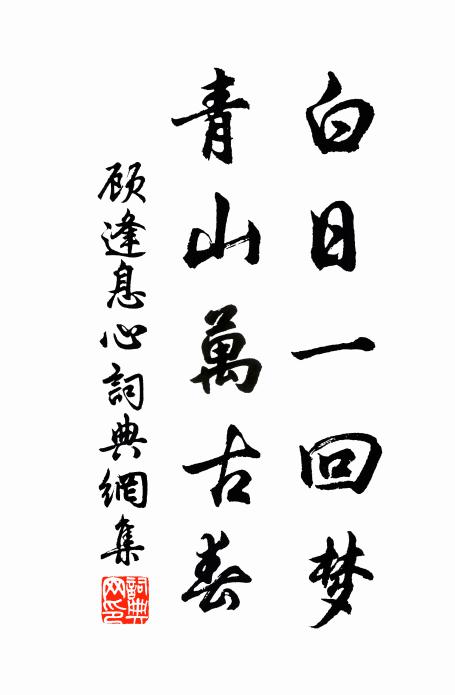 白日一回梦
青山萬古春
顾逢息心詞典網集
詞典网印